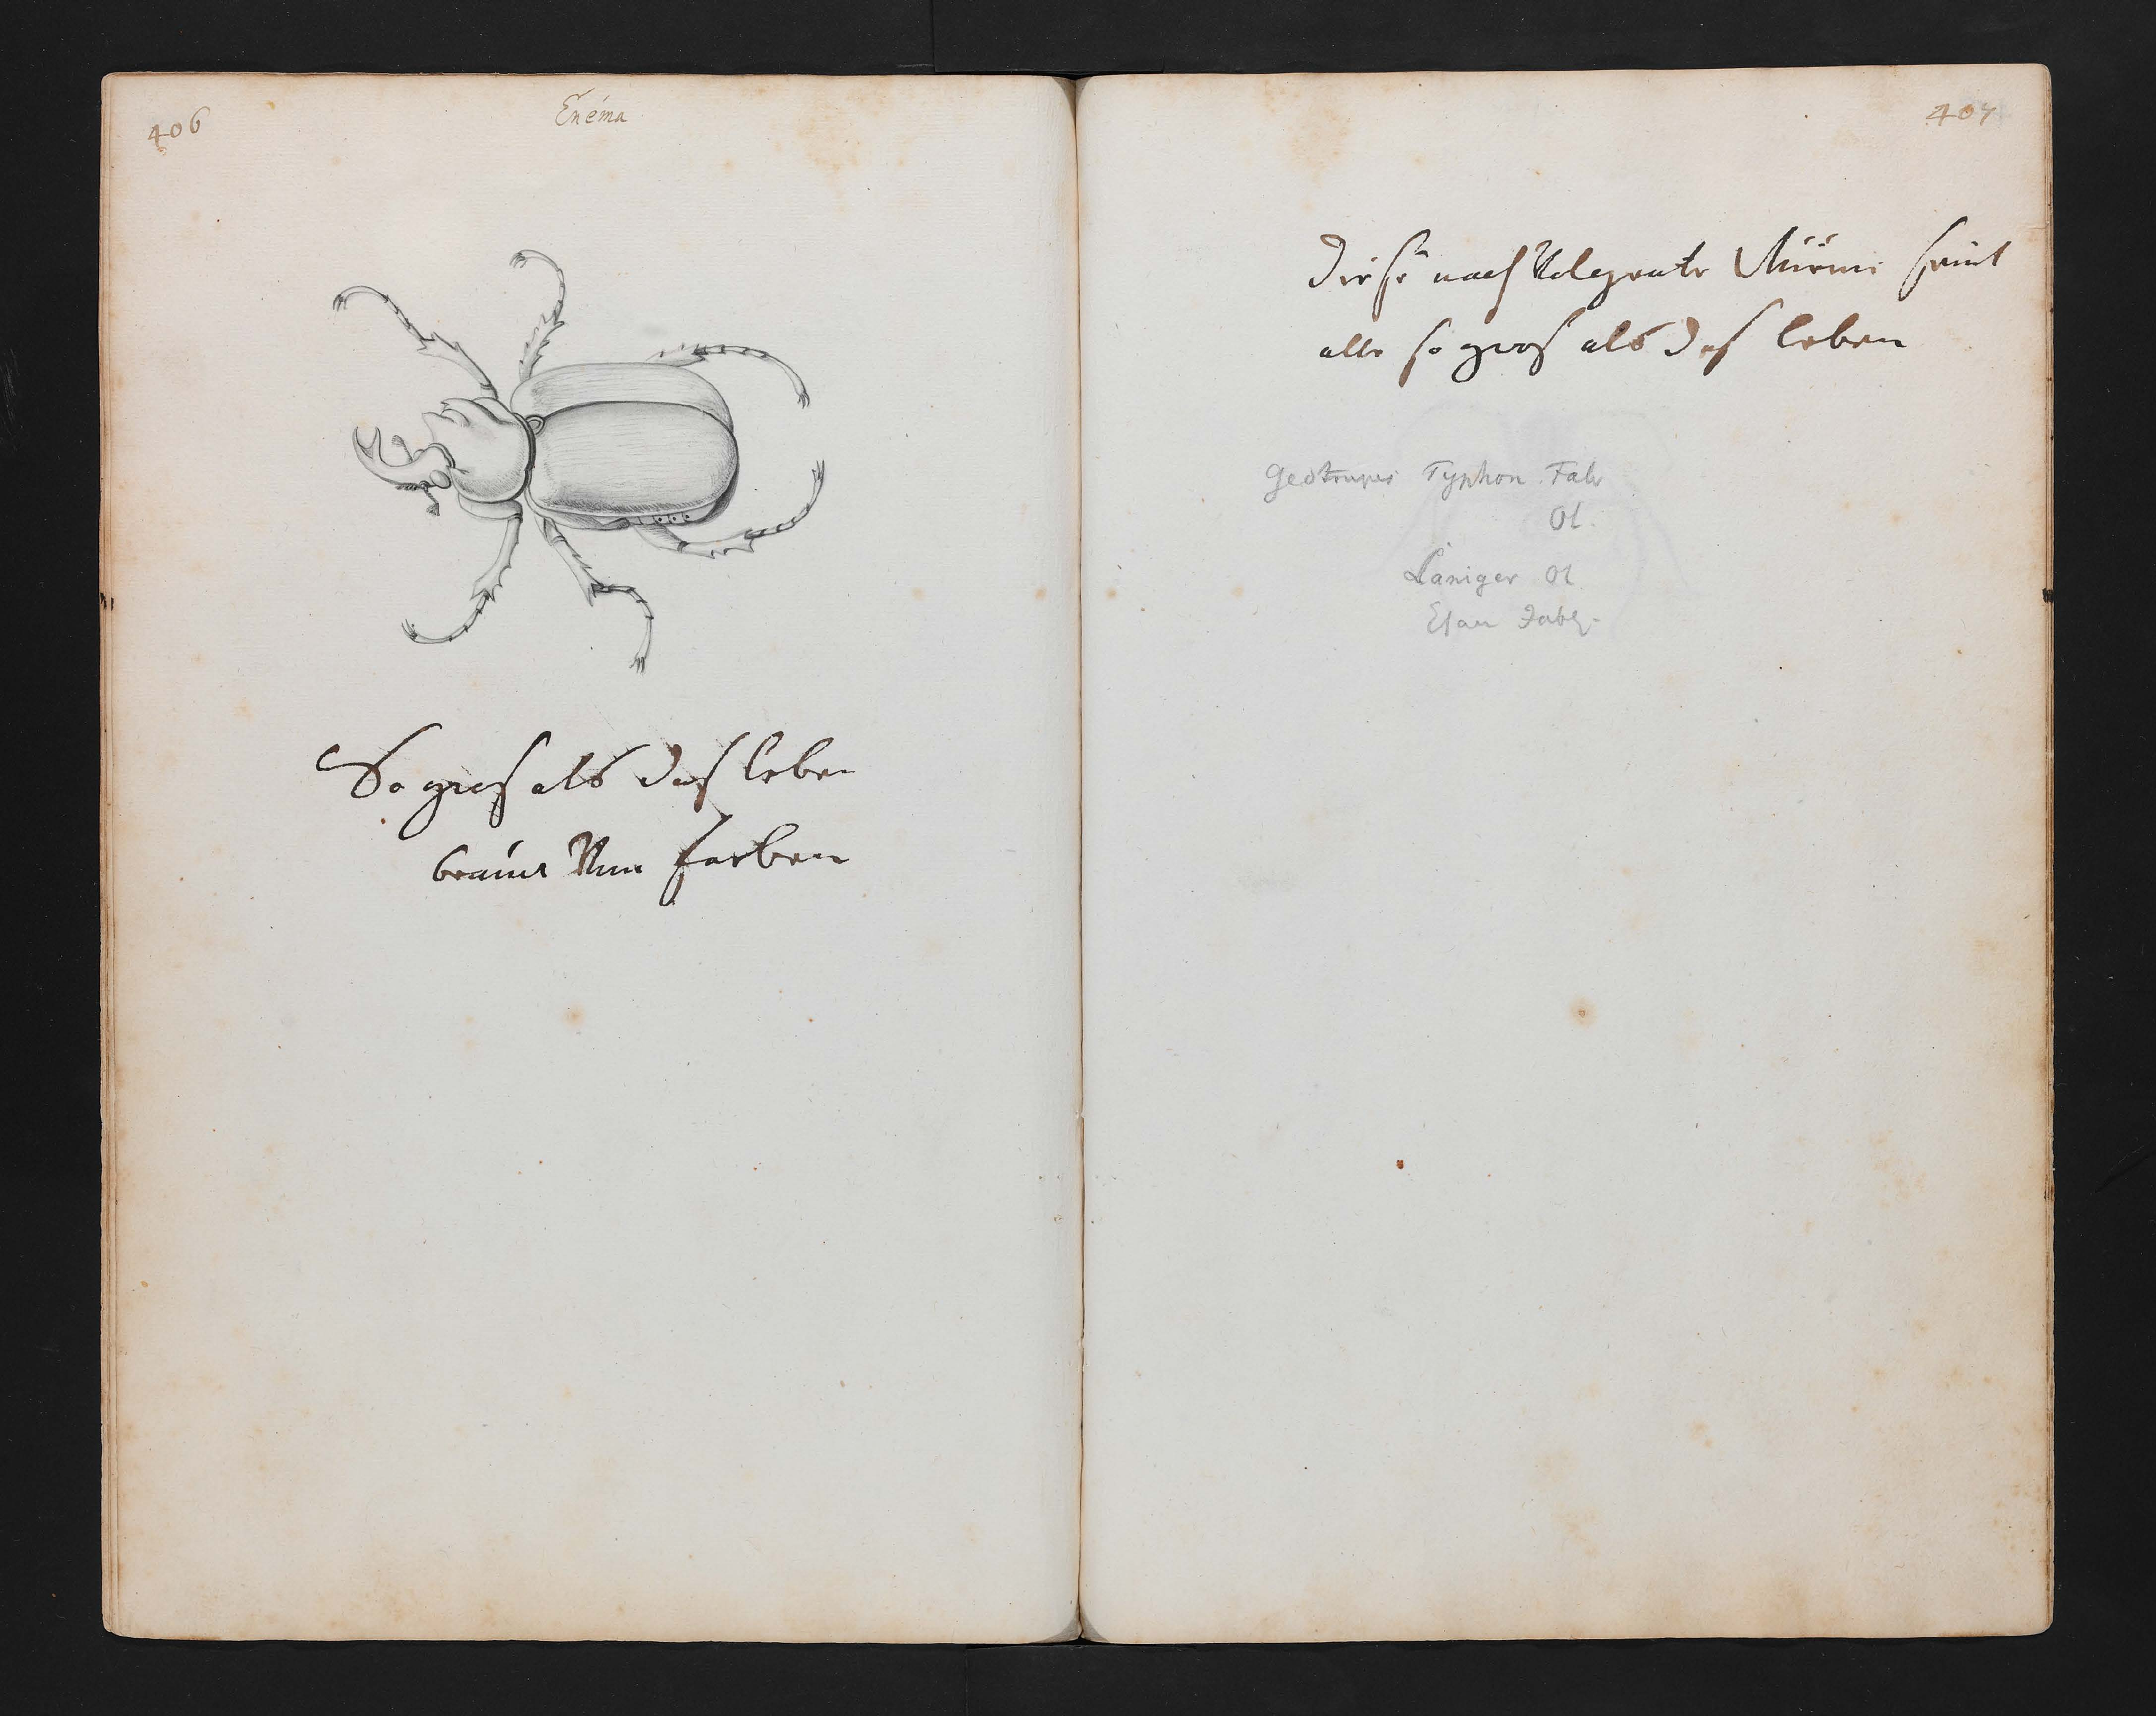 406
Enema
So gros als das leben
braun Von farben
407
Diese nach Volgente Würme seint
alle so gros als das leben
Geotrupes Typhon Fab
Ol.
Laniger Ol
Esau